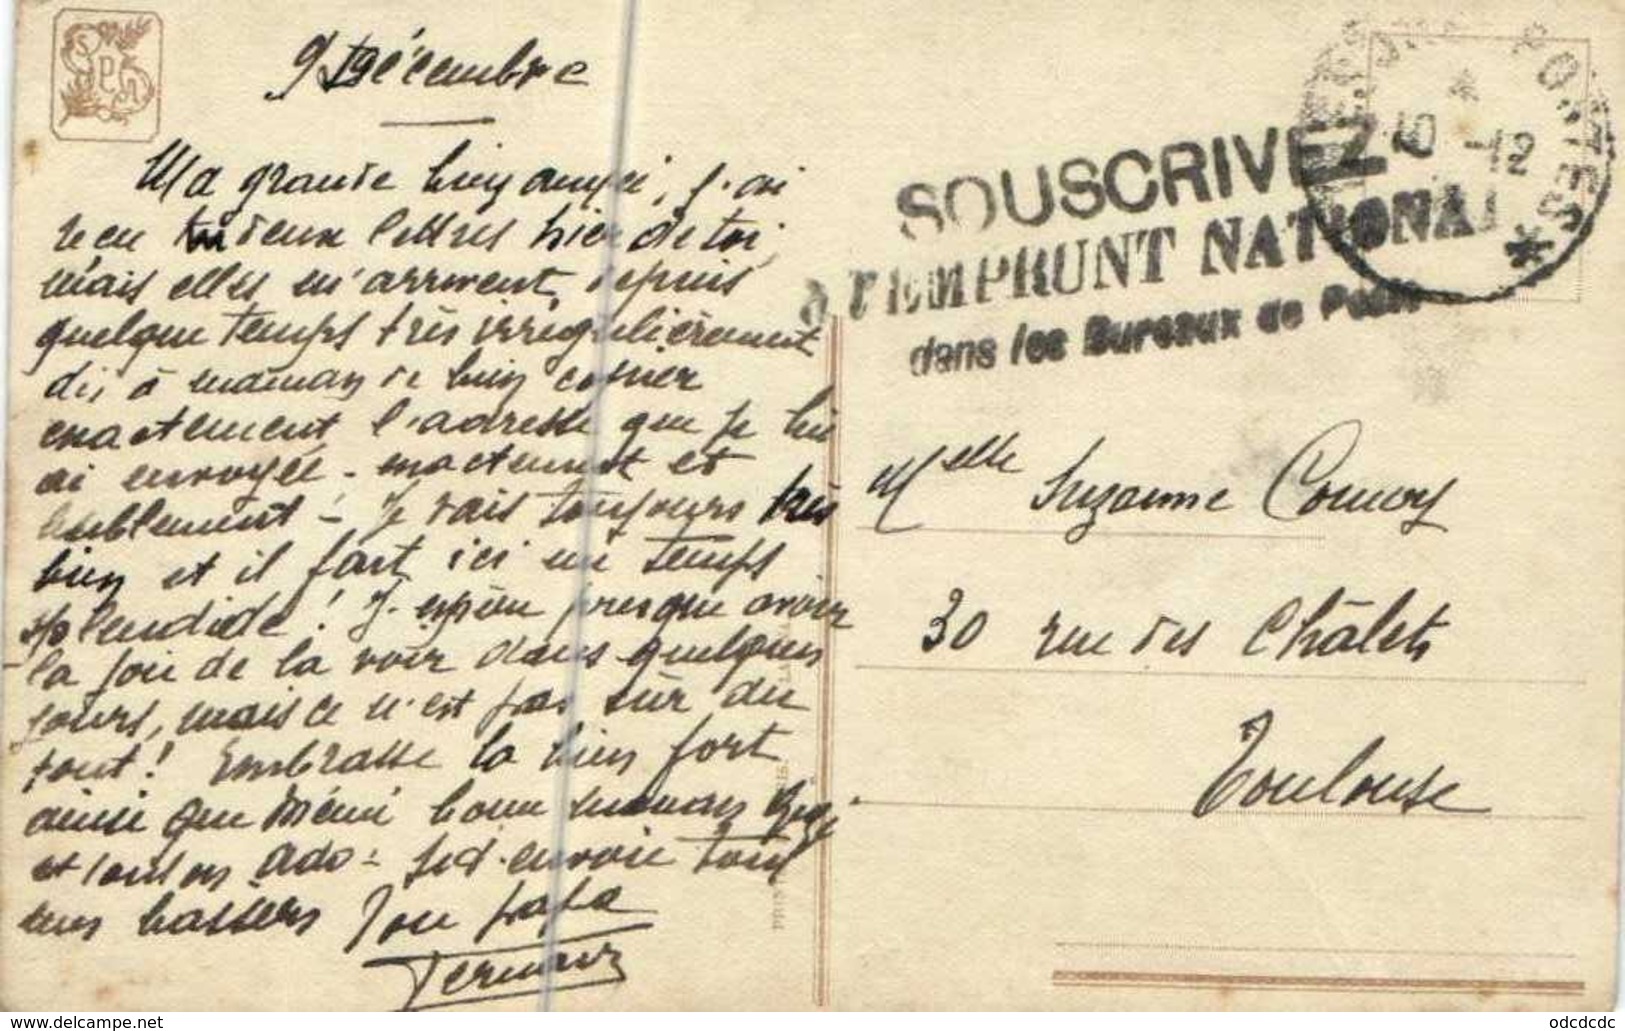 9 Décembre
Ma grande bien aimée, j'ai
reçu deux lettres hier de toi,
mais elles m'arrivent, depuis
quelque temps très irrégulièrement
dis à maman de bien copier
exactement l'adresse que je lui
ai envoyée - exactement et
lisiblement - Je vais toujours très
bien et il fait ici un temps
splendide! J'espère presque avoir
la joie de la voir dans quelques
jours, mais ce n'est pas sûr du
tout! Embrasse la bien fort
ainsi que Mémé bonne maman
et tonton Ado - Je t'envoie tous
mes baisers Ton papa
Fernand
SOUSCRIVEZ
à l'EMPRUNT NATIONAL
dans les Bureaux de Poste
POSTES *
10 -12
Melle Suzanne
30 rue des Châlets
Toulouse
PARIS
odcdcdc
www.delcampe.net